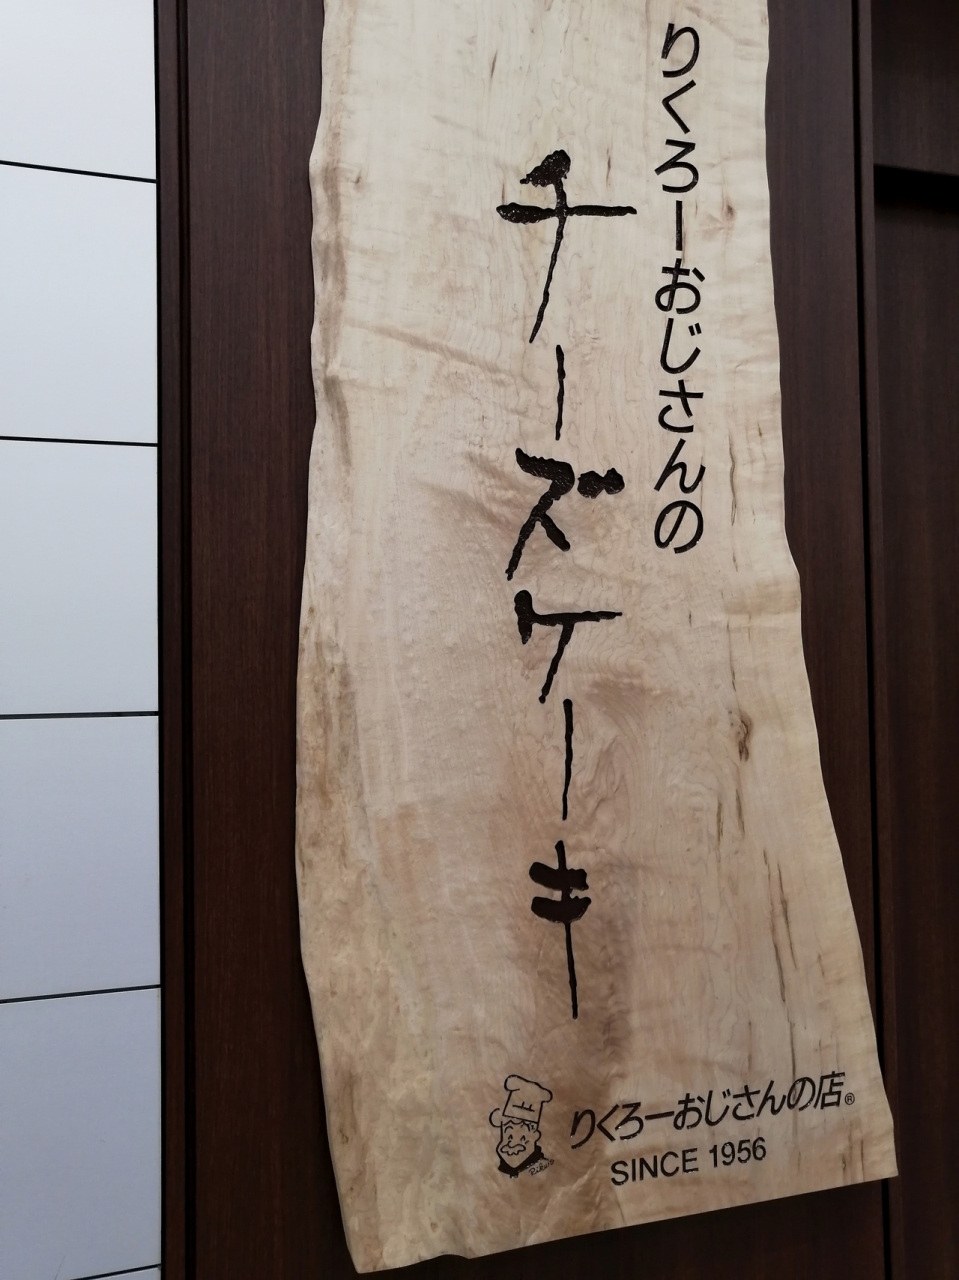 りくろーおじさんの
チーズケーキ
りくろーおじさんの店®
SINCE 1956
Rikuro